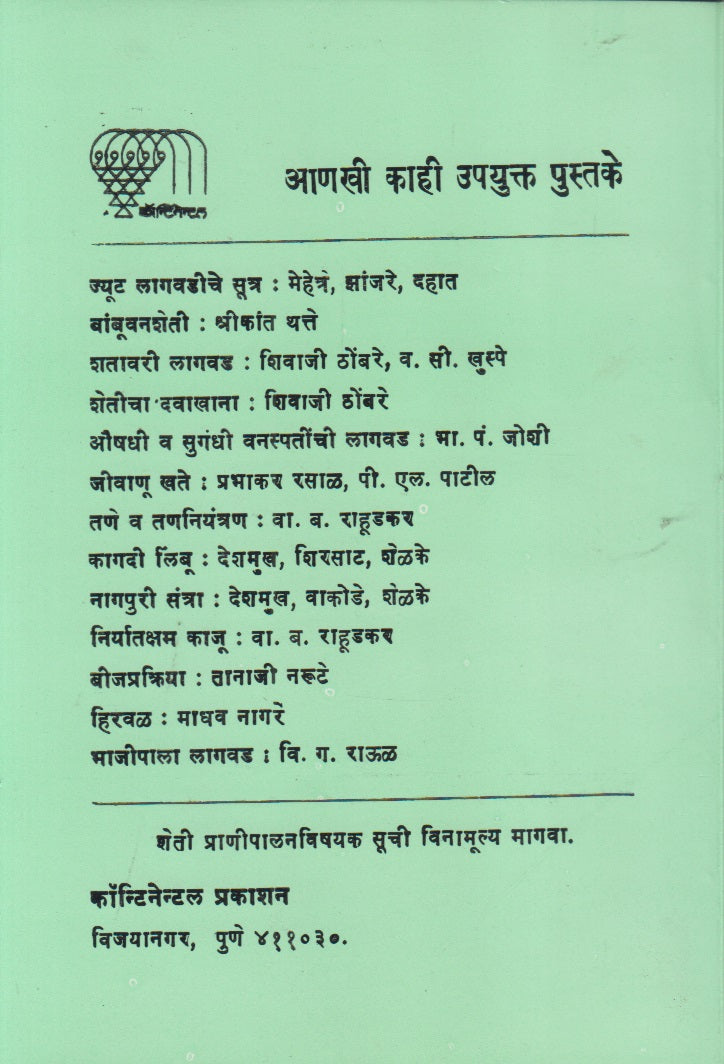 कॉन्टिनेन्टल
आणखी काही उपयुक्त पुस्तके
ज्यूट लागवडीचे सूत्र : मेहेत्रे, झांजरे, दहात
बांबूवनशेती : श्रीकांत यत्ते
शतावरी लागवड : शिवाजी ठोंबरे, व. सी. खुस्पे
शेतीचा दवाखाना : शिवाजी ठोंबरे
औषधी व सुगंधी वनस्पतींची लागवड : भा. पं. जोशी
जीवाणू खते : प्रभाकर रसाळ, पी. एल. पाटील
तणे व तणनियंत्रण : वा. ब. राहूडकर
कागदी लिंबू : देशमुख, शिरसाट, शेळके
नागपुरी संत्रा : देशमुख, वाकोडे, शेळके
निर्यातक्षम काजू : वा. ब. राहूडकर
बीजप्रक्रिया : तानाजी नरूटे
हिरवळ : माधव नागरे
भाजीपाला लागवड : वि. ग. राऊळ
शेती प्राणीपालनविषयक सूची विनामूल्य मागवा.
कॉन्टिनेन्टल प्रकाशन
विजयानगर, पुणे ४११०३०.